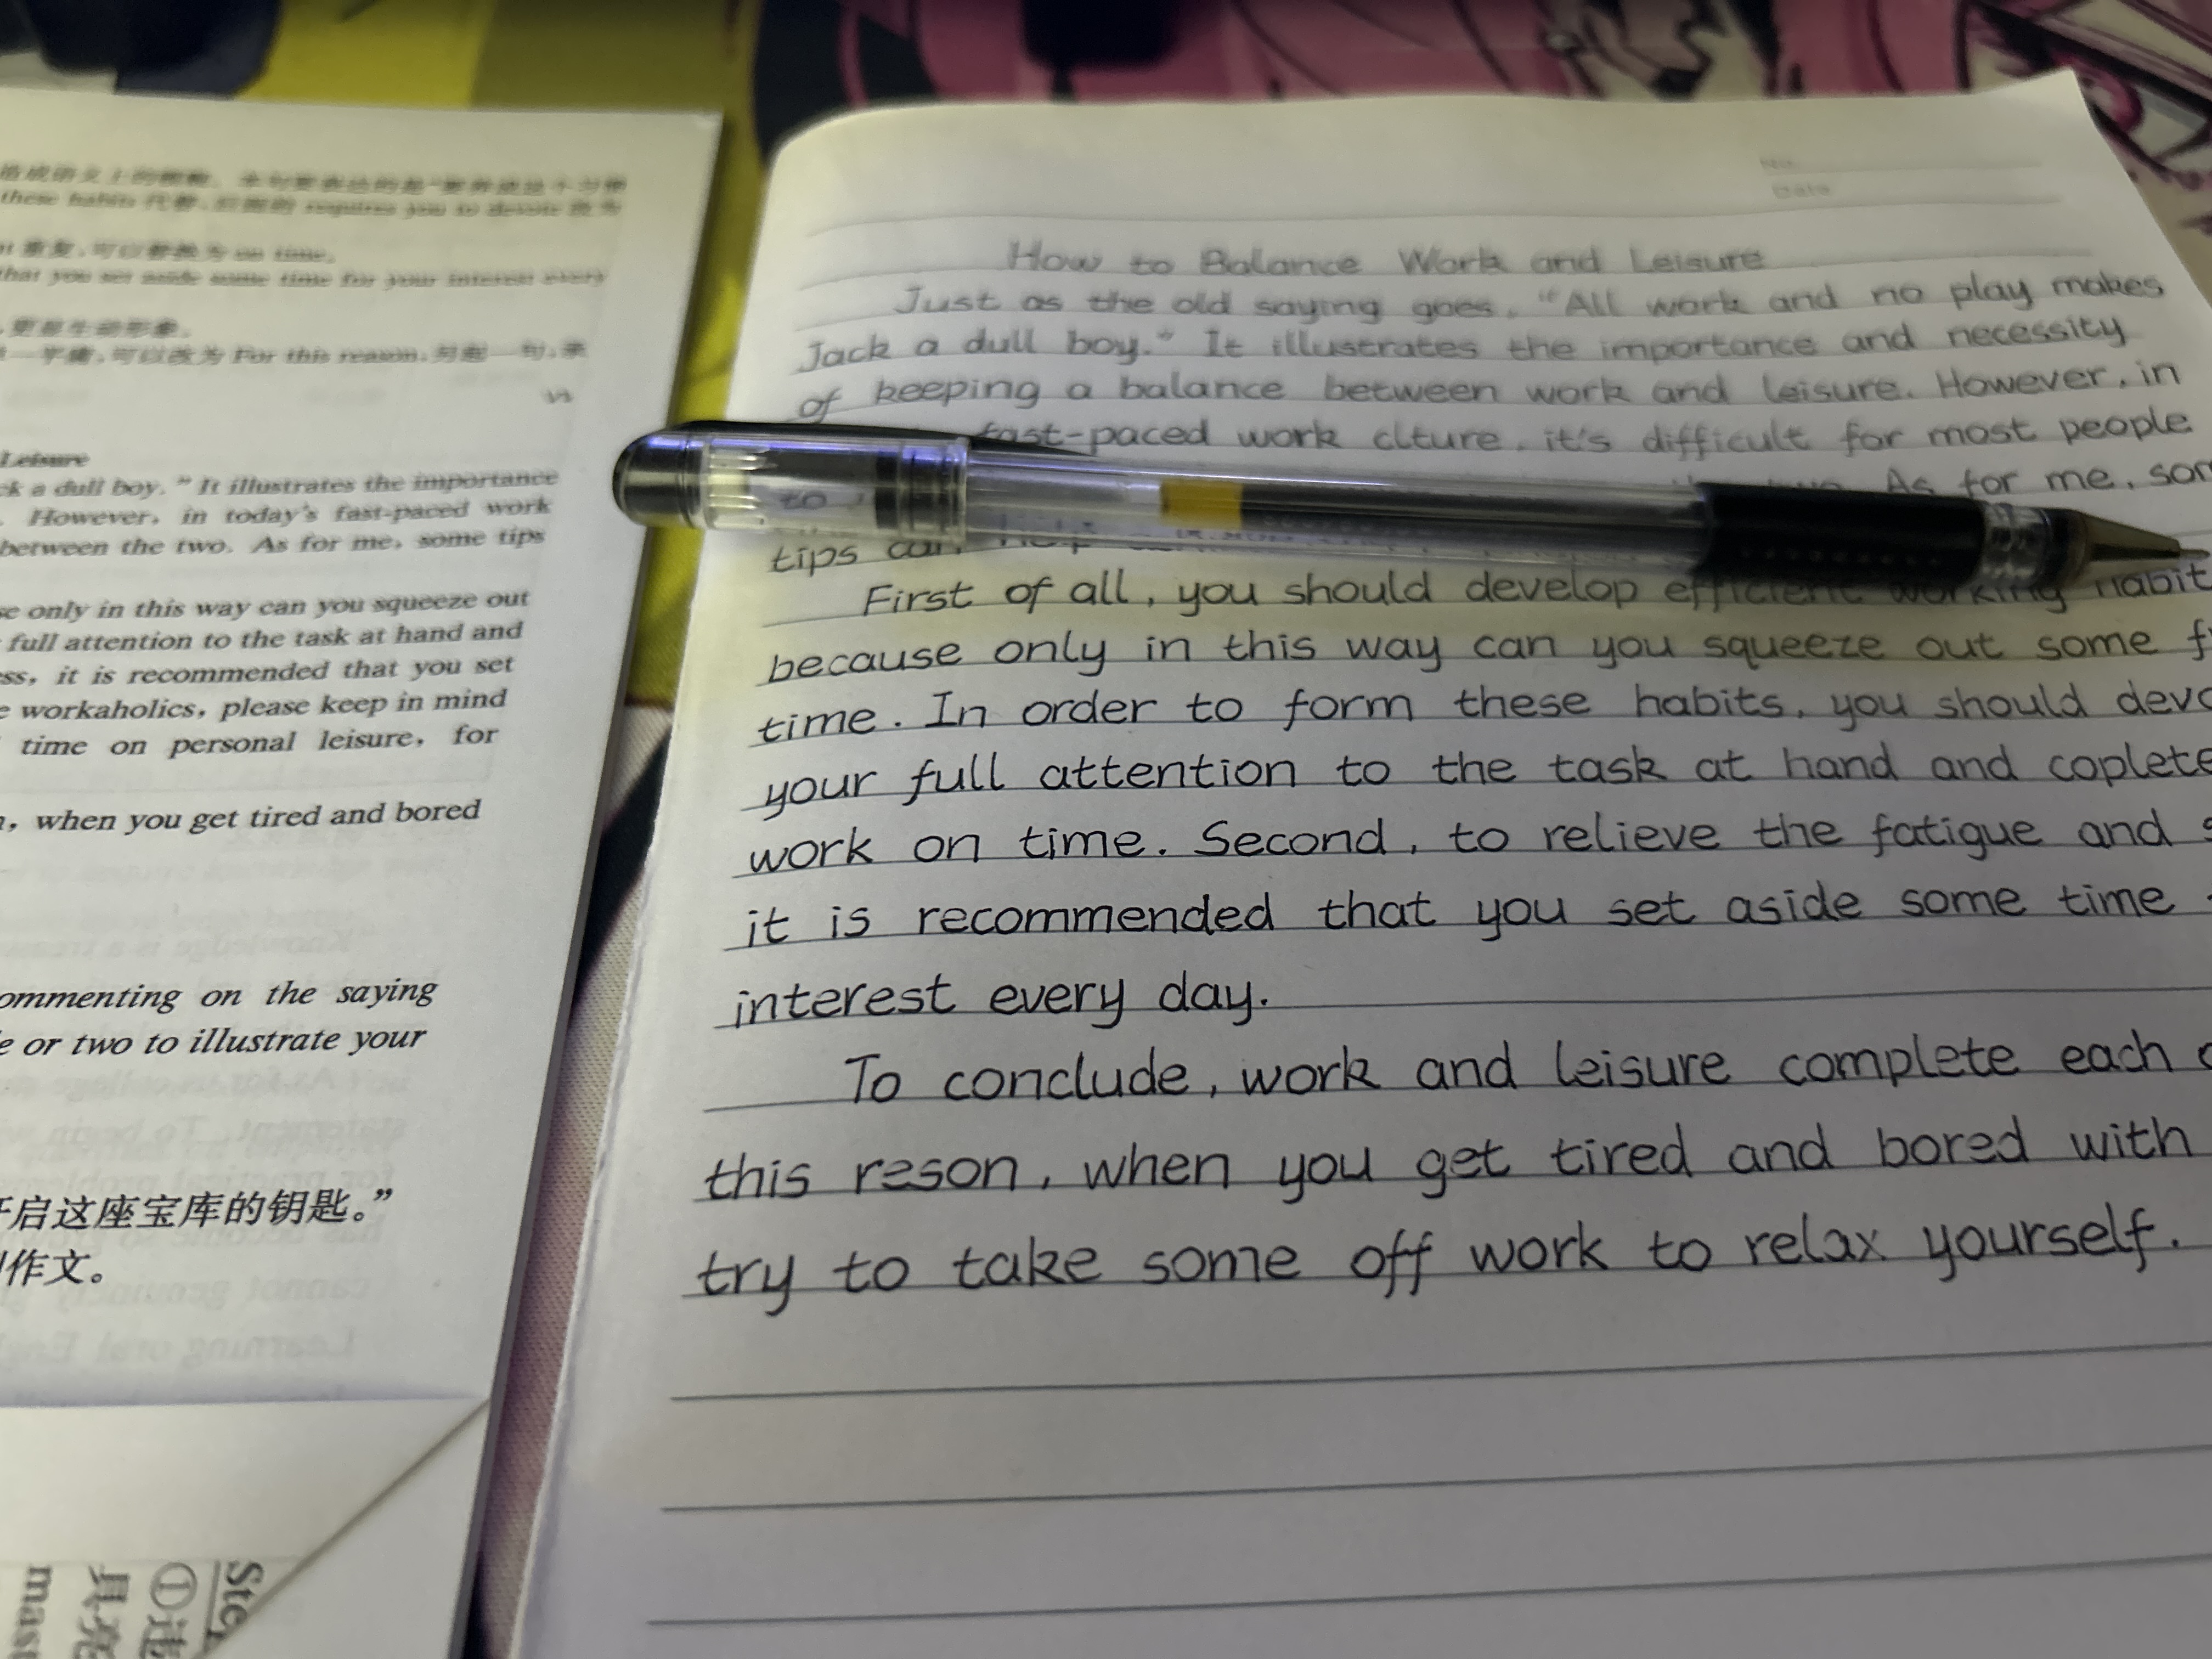 these habits 代替,后面的 requires you to devote 改为
重复,可以替换为 on time。
that you set aside some time for your interest every
更显生动形象。
一平庸,可以改为 For this reason,另起一句,承
Leisure
ck a dull boy. ” It illustrates the importance
. However, in today's fast-paced work
between the two. As for me, some tips
se only in this way can you squeeze out
full attention to the task at hand and
ss, it is recommended that you set
e workaholics, please keep in mind
time on personal leisure, for
, when you get tired and bored
ommenting on the saying
e or two to illustrate your
开启这座宝库的钥匙。”
作文。
Ste
①
具
mast
No.
Date
How to Balance Work and Leisure
Just as the old saying goes, "All work and no play makes
Jack a dull boy." It illustrates the importance and necessity
of keeping a balance between work and leisure. However, in
fast-paced work clture, it's difficult for most people
to As for me, som
tips can help
First of all, you should develop efficient working habit
because only in this way can you squeeze out some f
time. In order to form these habits, you should devo
your full attention to the task at hand and coplete
work on time. Second, to relieve the fatigue and s
it is recommended that you set aside some time
interest every day.
To conclude, work and leisure complete each o
this reson, when you get tired and bored with
try to take some off work to relax yourself.